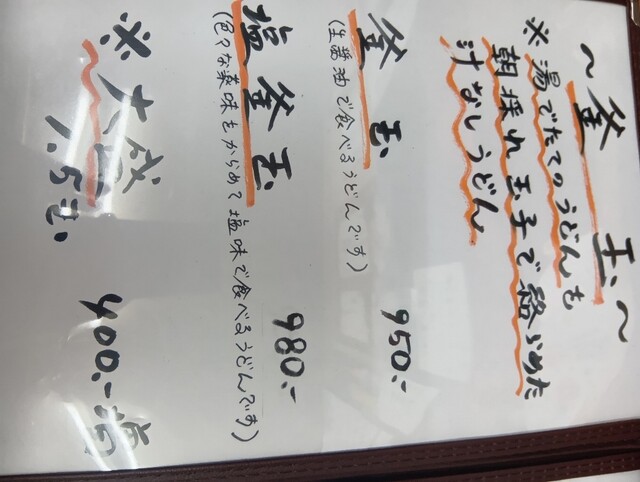 ～釜玉～
※湯でたてのうどんを
朝採れ玉子で絡めた
汁なしうどん
釜玉
(生醤油で食べるうどんです)
950.-
塩釜玉
(色々な薬味をからめて塩味で食べるうどんです)
980.-
※大盛
1.5玉
400.-増